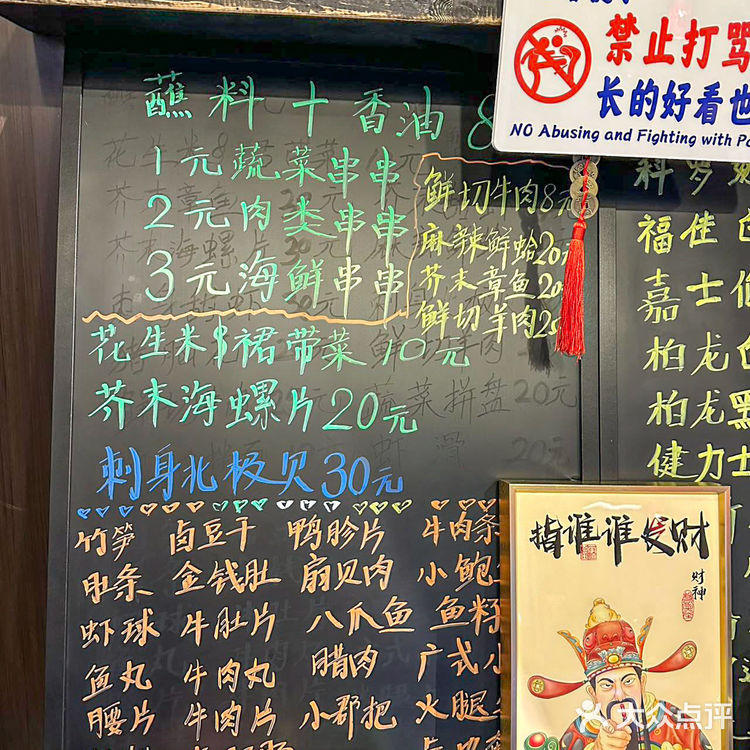 蘸料十香油 8
1元蔬菜串串
2元肉类串串
3元海鲜串串
鲜切牛肉8元
麻辣鲜蛤20元
芥末章鱼20
鲜切羊肉20
花生米8 裙带菜10元
芥末海螺片20元
刺身北极贝30元
竹笋 卤豆干 鸭胗片 牛肉条
甲条 金钱肚 扇贝肉 小鲍
虾球 牛肚片 八爪鱼 鱼籽
鱼丸 牛肉丸 腊肉 广式小
腰片 牛肉片 小郡把 火腿
禁止打骂
长的好看也
NO Abusing and Fighting with
科罗
福佳白
嘉士伯
柏龙白
柏龙黑
健力士
指谁谁发财
财神
大众点评